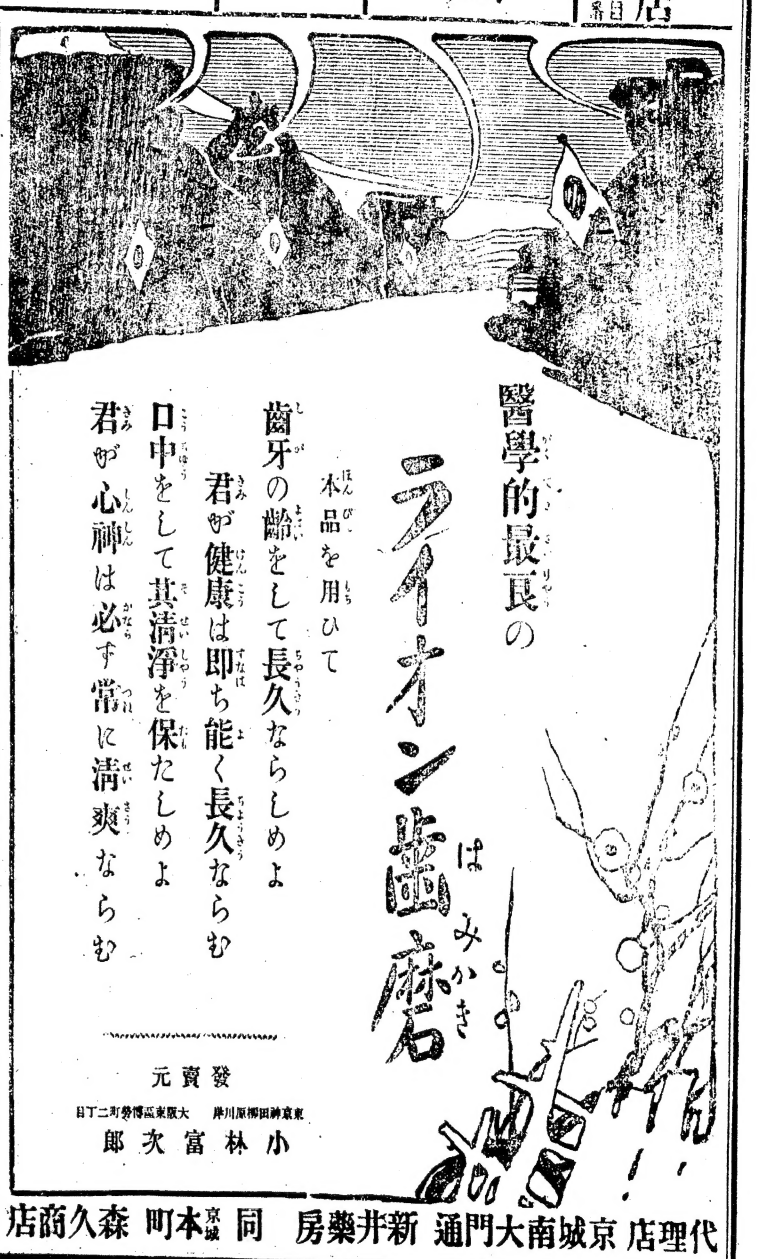 店
番目
醫學的最良の
ライオン歯磨
はみかき
本品を用ひて
齒牙の齡をして長久ならしめよ
君が健康は即ち能く長久ならむ
口中をして其清淨を保たしめよ
君が心神は必ず常に清爽ならむ
發賣元
東京神田柳原川岸 大阪東區博勞町二丁目
小林富次郎
代理店 京城南大門通 新井藥房 同 京城本町 森久商店